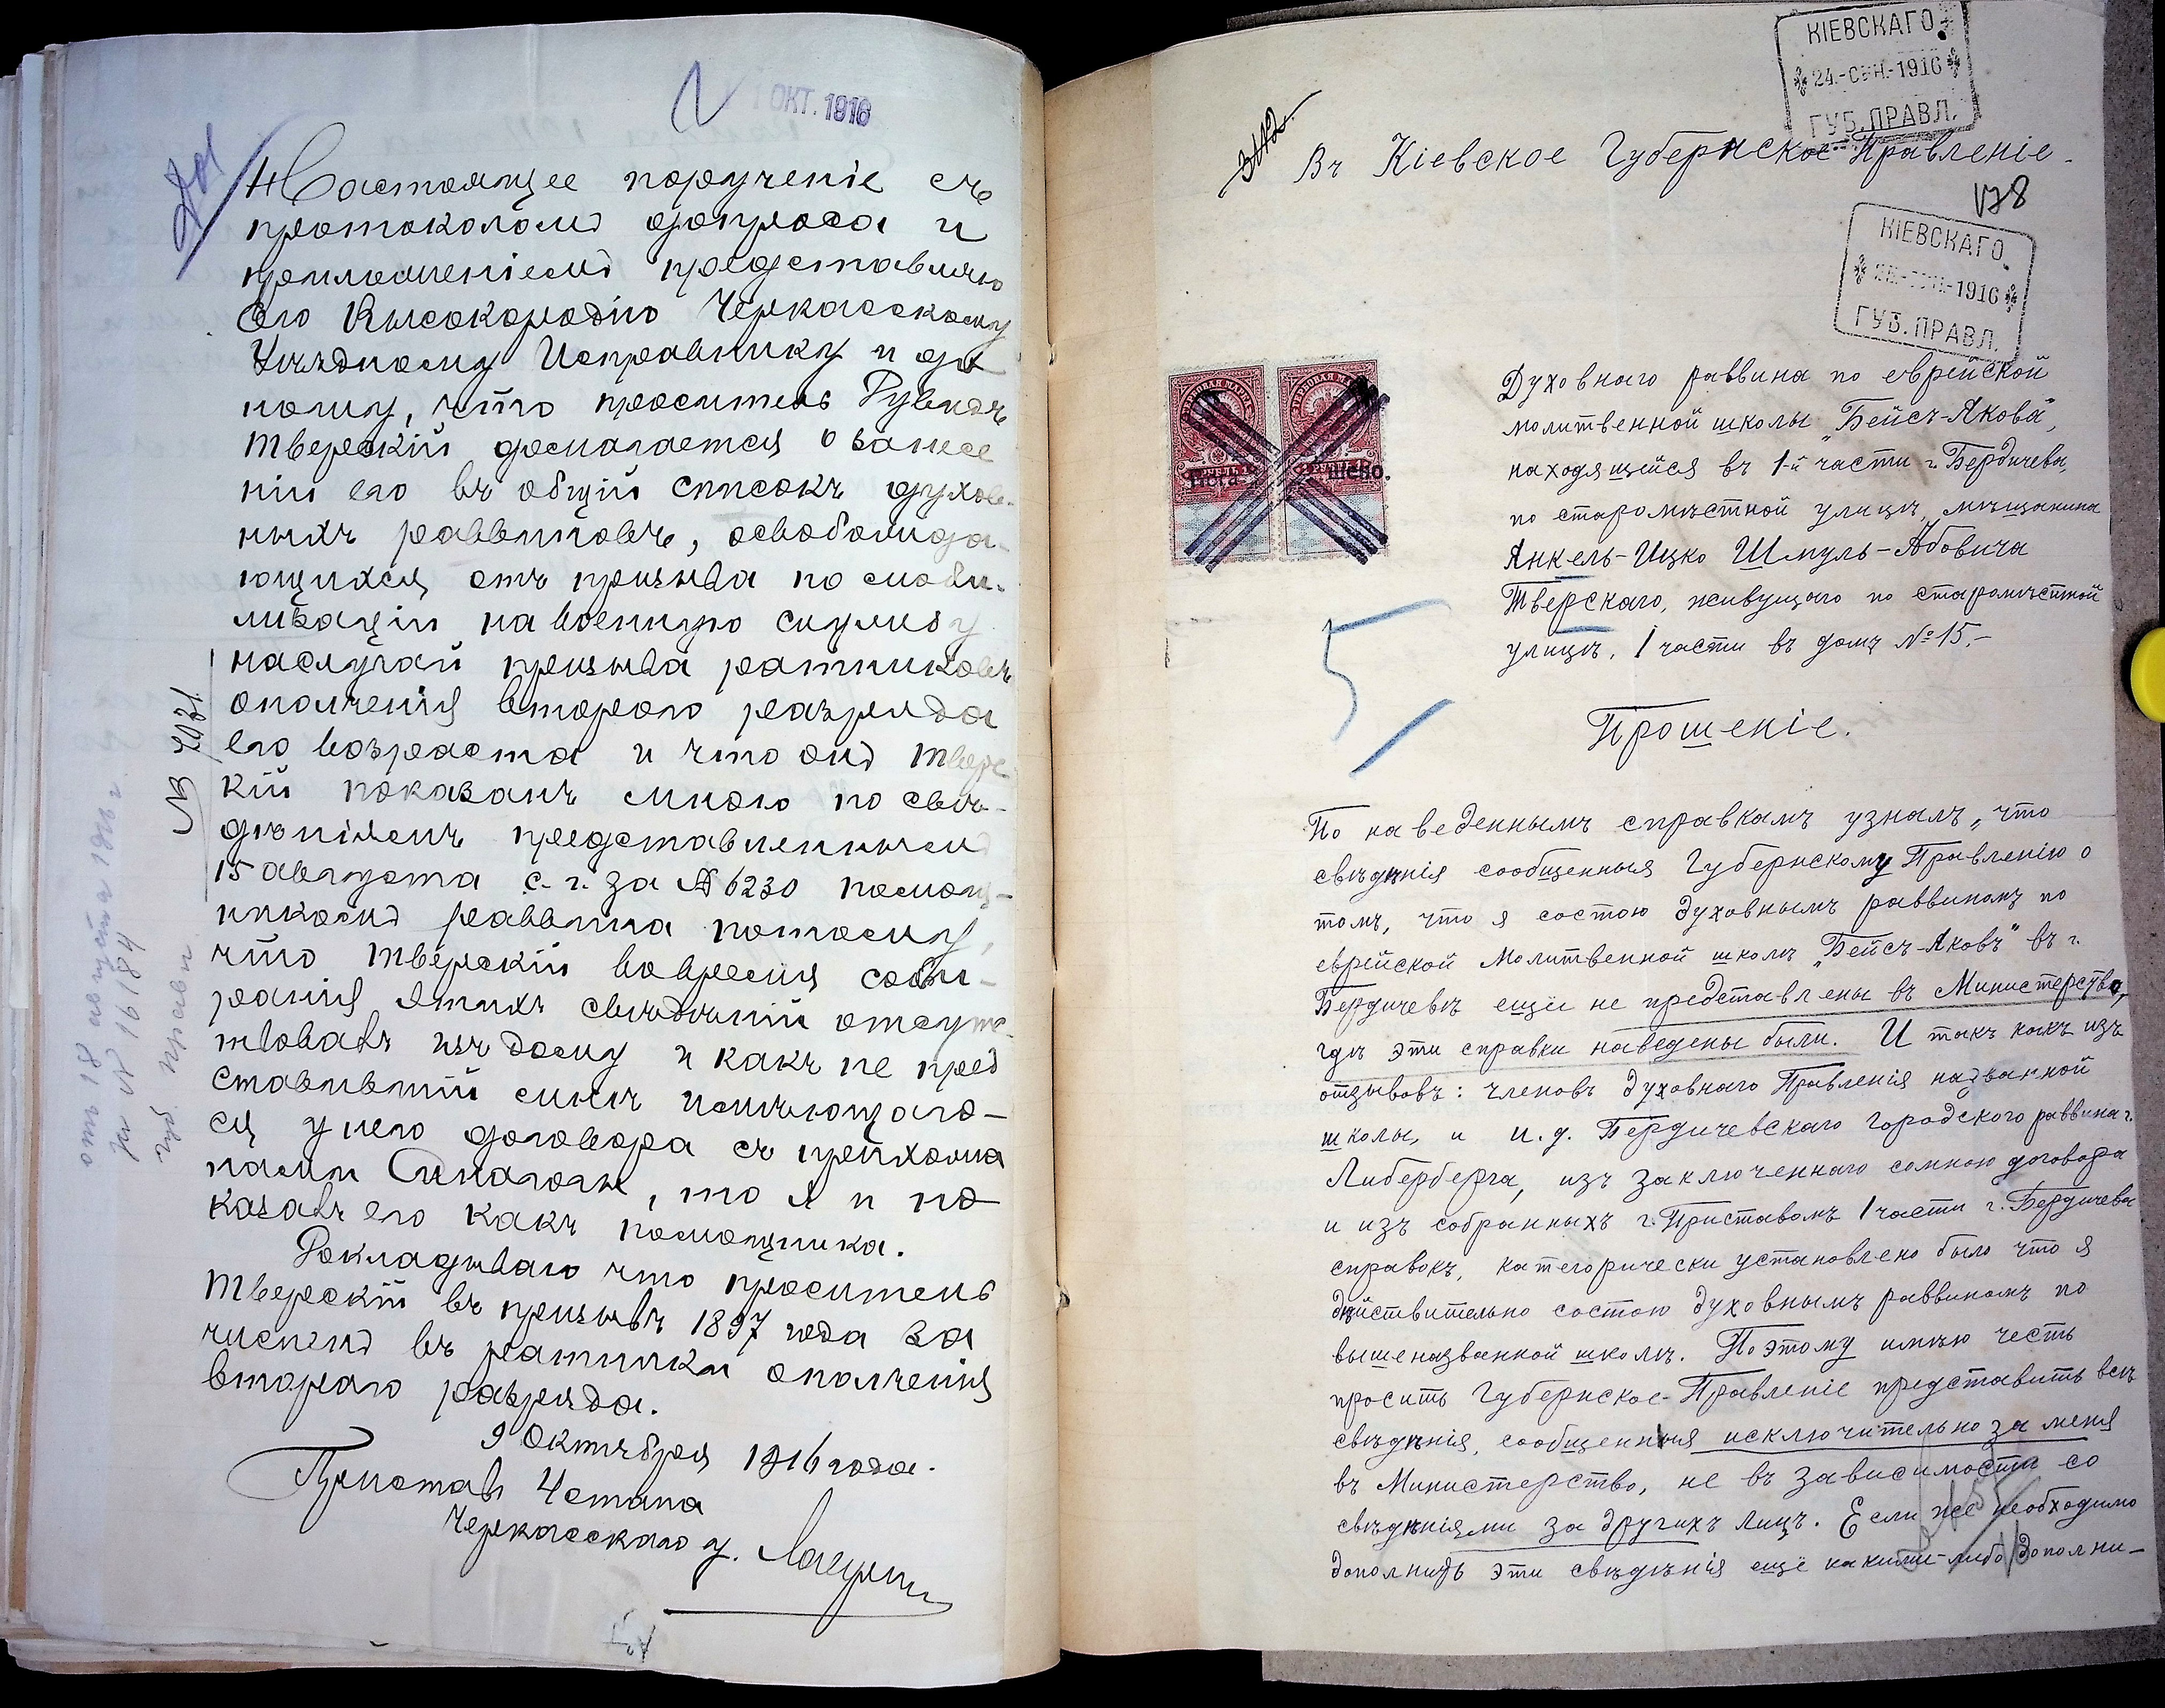 1 ОКТ. 1916
Настоящее порученіе съ
протоколомъ допроса и
приложеніемъ представляю
Его Высокородію Черкасскому
Уѣздному Исправнику и до
ношу, что проситель Рувинъ
Тверскій домогается о занесе
ніи его въ общій списокъ духов-
ныхъ раввиновъ, освобожда-
ющихся отъ призыва по моби-
лизаціи на военную службу
на случай призыва ратниковъ
ополченія второго разряда
его возраста и что онъ Твере
кій показанъ мною по свѣ-
дѣніямъ представленнымъ
15 августа с. г. за № 6230 помощ-
никомъ раввина потому,
что Тверскій во время соби-
ранія этихъ свѣдѣній отсутс-
твовалъ изъ дому и какъ не пред
ставившій мнѣ имѣющаго-
ся у него договора съ прихожа
нами Синагоги, то я и по
казалъ его какъ помощника.
Докладываю что проситель
Тверскій въ призывъ 1897 года за
численъ въ ратники ополченія
второго разряда.
9 Октября 1916 года.
Приставъ 4 стана
Черкасскаго у.
№ 7071
отъ 18 августа 1916 г.
за № 16184
Губ. Правл
КІЕВСКАГО
24.-СЕН.-1916
ГУБ. ПРАВЛ.
Въ Кіевское Губернское Правленіе.
178
КІЕВСКАГО
1916
ГУБ. ПРАВЛ.
Духовнаго раввина по еврейской
молитвенной школы „Бейсъ-Якова",
находящейся въ 1-й части г. Бердичева,
по старомѣстной улицѣ, мѣщанина
Янкель-Ицко Шмуль-Абовича
Тверскаго, живущаго по старомѣстной
улицѣ, 1 части въ дому № 15.-
5
Прошеніе.
По наведеннымъ справкамъ узналъ, что
свѣдѣнія сообщенныя Губернскому Правленію о
томъ, что я состою духовнымъ раввиномъ по
еврейской молитвенной школѣ „Бейсъ-Яковъ" въ г.
Бердичевѣ ещё не представлены въ Министерство,
гдѣ эти справки наведены были. И такъ какъ изъ
отзывовъ: членовъ духовнаго Правленія названной
школы, и и. д. Бердичевскаго Городского раввина г.
Либерберга, изъ заключеннаго со мною договора
и изъ собранныхъ г. Приставомъ 1 части г. Бердичева
справокъ, категорически установлено было что я
дѣйствительно состою духовнымъ раввиномъ по
вышеназванной школѣ. Поэтому имѣю честь
просить Губернское-Правленіе представить всѣ
свѣдѣнія, сообщенныя исключительно за меня
въ Министерство, не въ зависимости со
свѣдѣніями за другихъ лицъ. Если же необходимо
дополнить эти свѣдѣнія ещё какими-либо дополни-